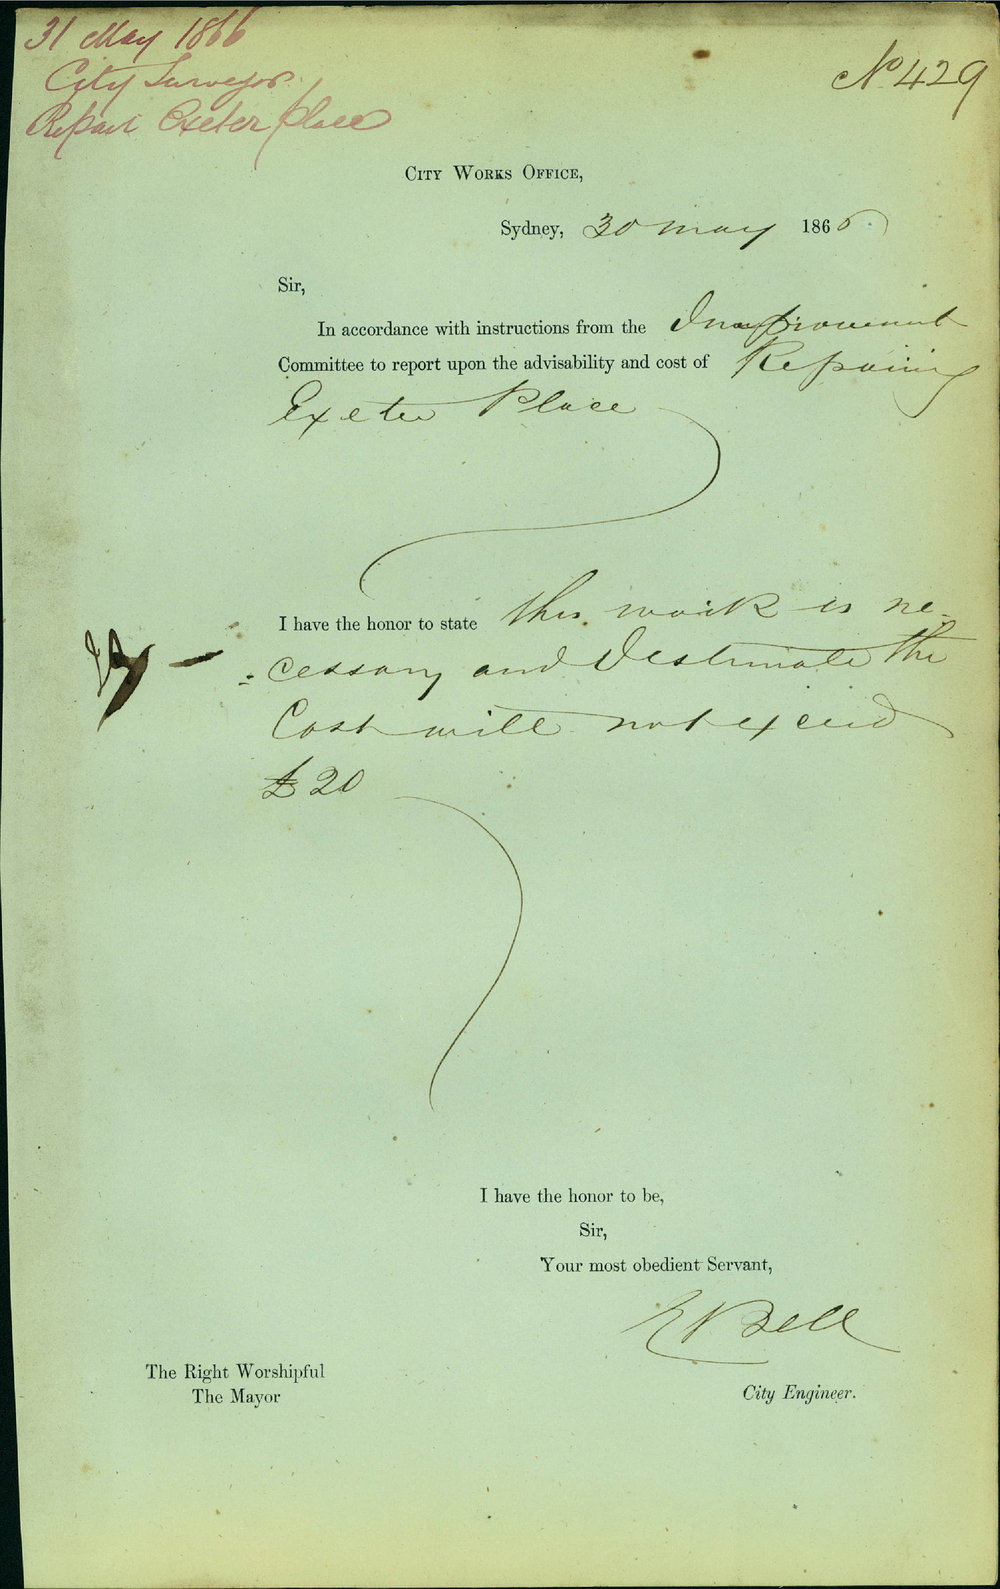 31 May 1866
City Surveyor
Repair Exeter place
No 429
City Works Office,
Sydney, 30 May 1866
Sir,
In accordance with instructions from the Improvement
Committee to report upon the advisability and cost of Repairing
Exeter Place
I have the honor to state this work is ne-
-cessary and I estimate the
Cost will not exceed
£20
I have the honor to be,
Sir,
Your most obedient Servant,
E Bell
The Right Worshipful
The Mayor
City Engineer.